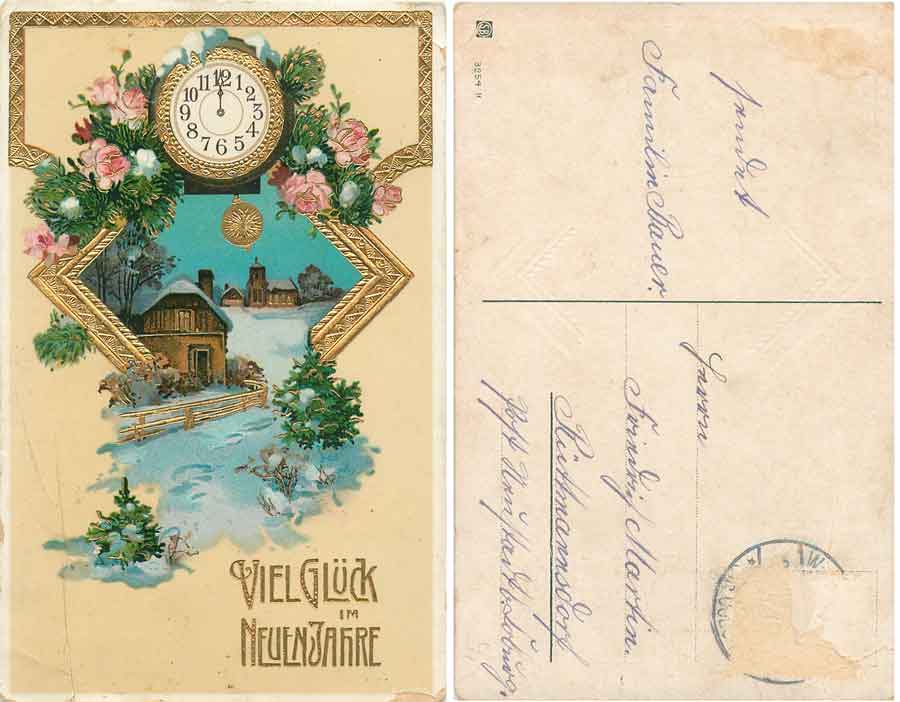 12
1
2
3
4
5
6
7
8
9
10
11
VIEL GLÜCK
IM
NEUEN JAHRE
SB
3954 II
sendet
Familie Bauer.
Herrn
Friedrich Martin.
Rüttmannsdorf
Post